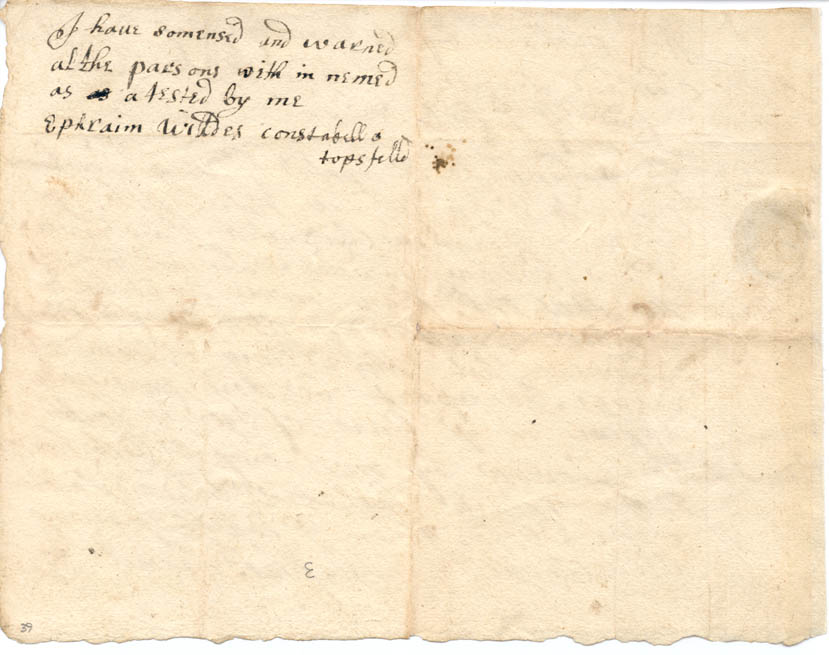 I haue somensed and warned
al the parsons with in nemed
as a tested by me
Ephraim Willdes constabell
topsfelld
3
39